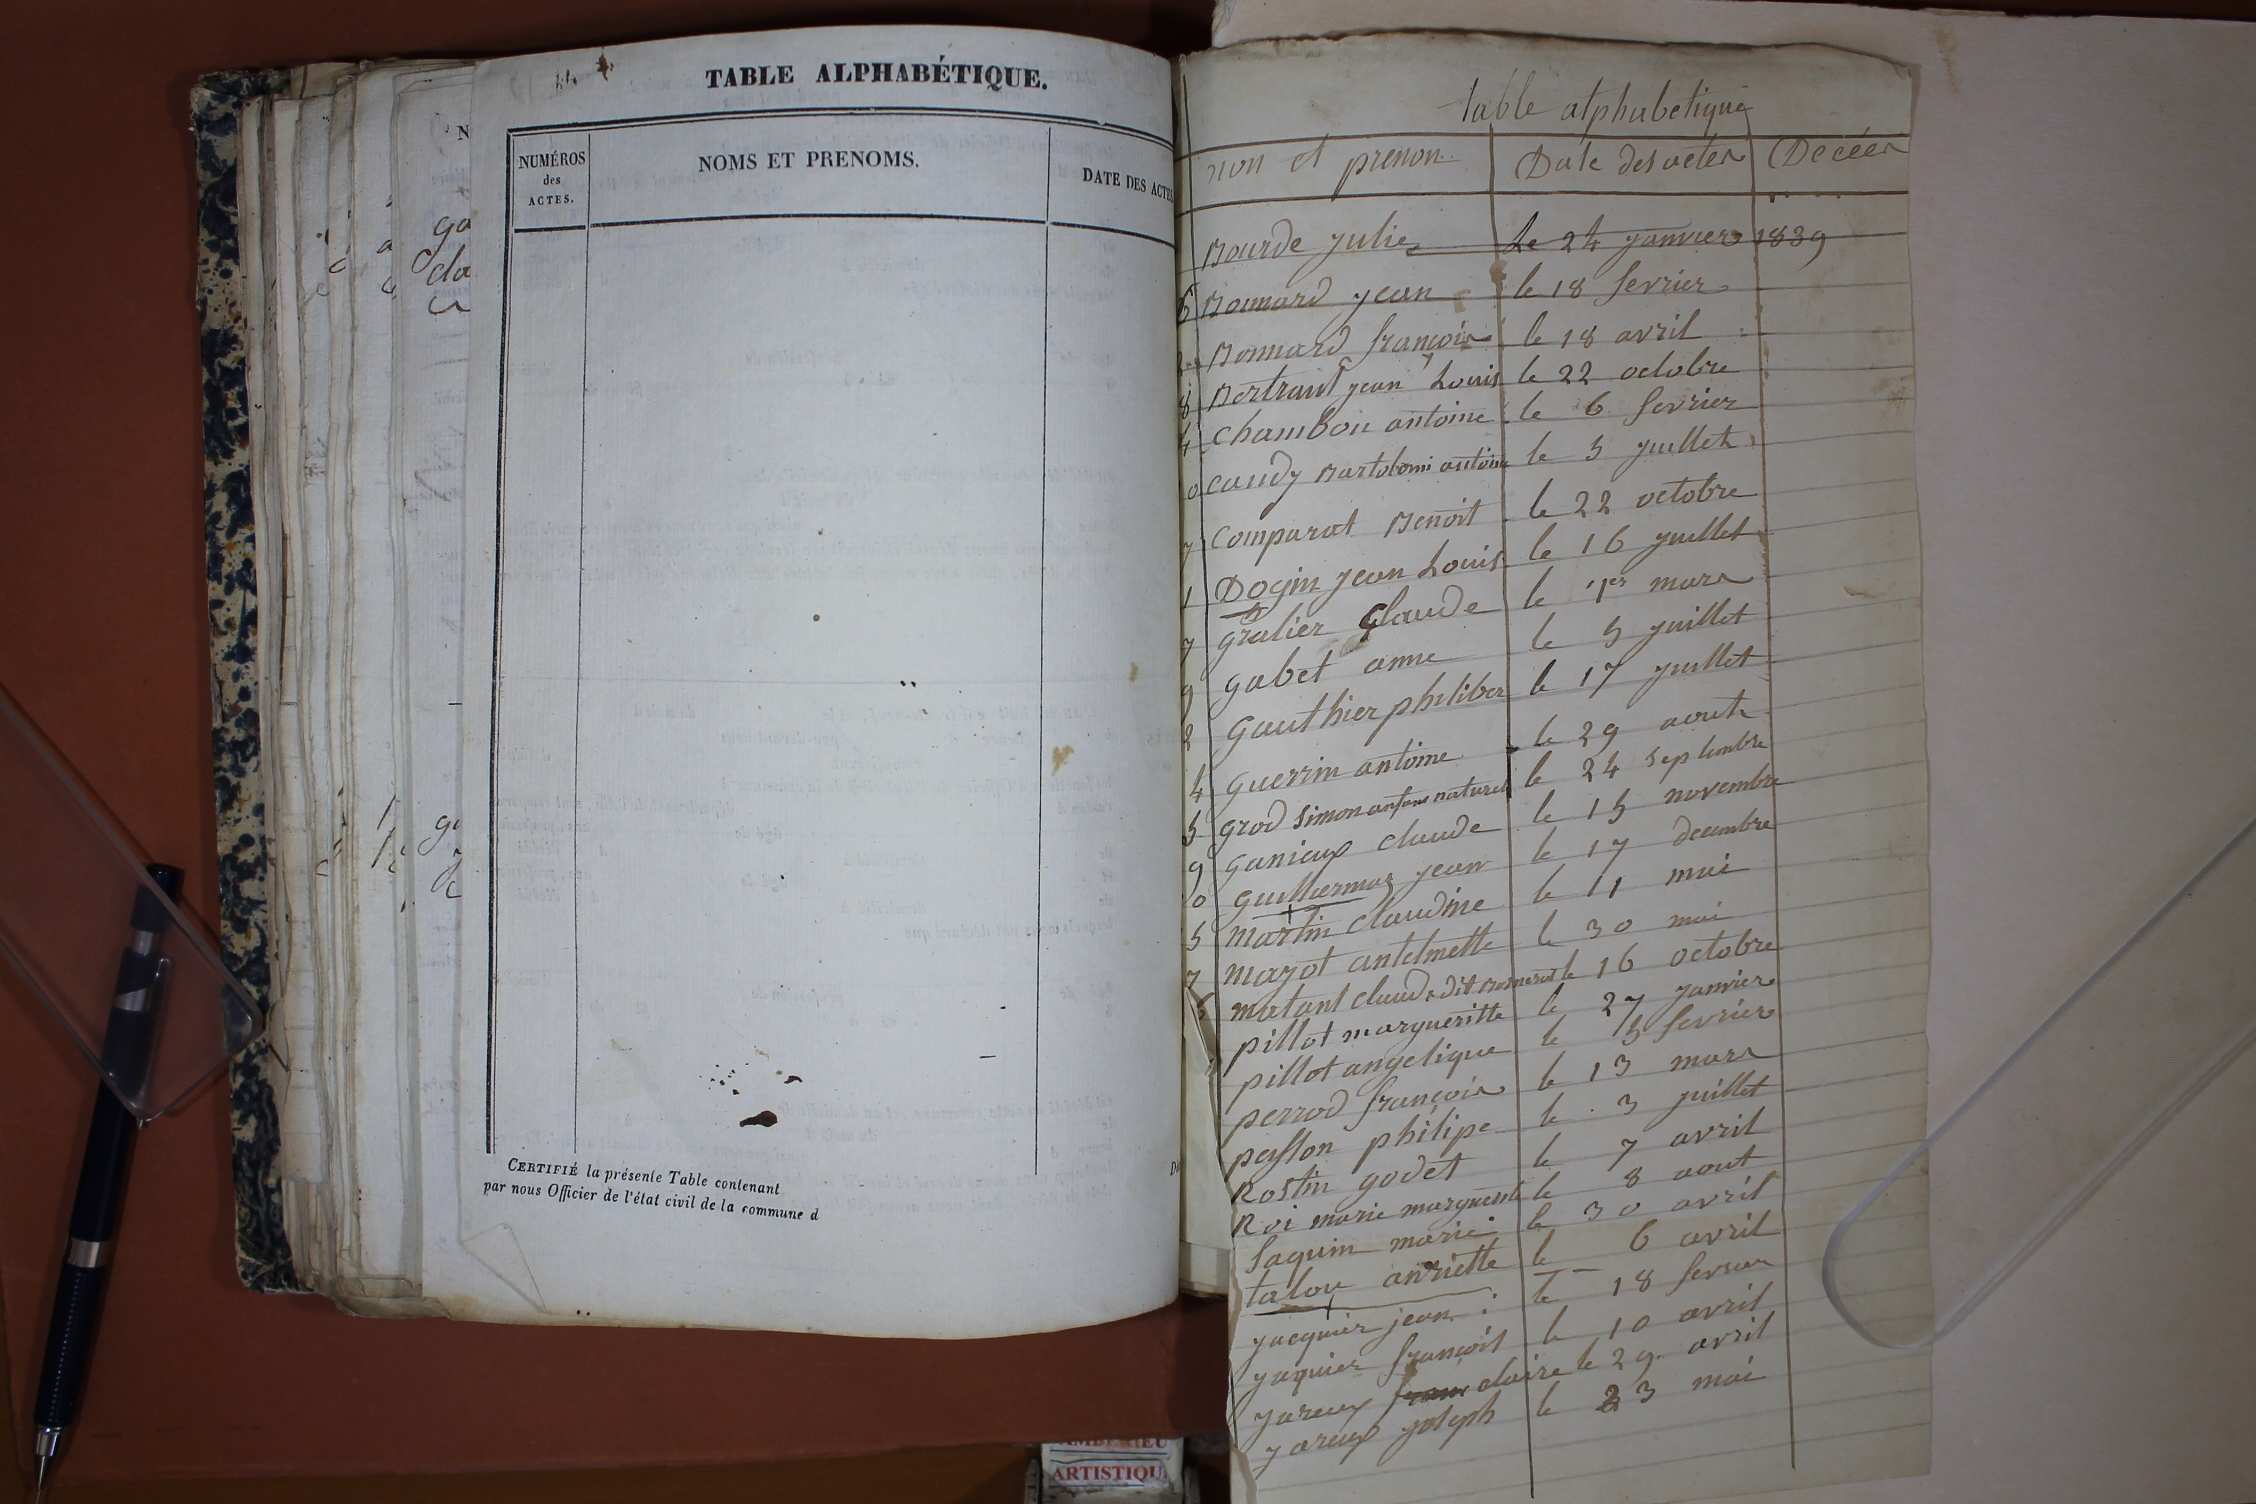 TABLE ALPHABÉTIQUE.
NUMÉROS des ACTES.
NOMS ET PRENOMS.
DATE DES ACTES
CERTIFIÉ la présente Table contenant
par nous Officier de l'état civil de la commune d
N
ga
cla
table alphabetique
non et prenon Date des actes Décées
Bourde julie Le 24 janvier 1839
6 Bonnard jean le 18 fevrier
Bonnard françois le 18 avril
8 Bertrant jean Louis le 22 octobre
4 chambon antoine le 6 fevrier
0 caudy Bartolomi antoine le 5 juillet
7 comparat Benoit le 22 octobre
1 Dogin jean Louis le 16 juillet
7 gralier claude le 1er mars
9 gabet anne le 5 juillet
2 gauthier philiber le 17 juillet
4 guerrin antoine le 29 aout
5 grod simon anfans naturel le 24 septembre
9 ganieux claude le 15 novembre
0 guillermoz jean le 17 decembre
5 martin claudine le 11 mai
7 mayot antelmette le 30 mai
6 matant claude dit le 16 octobre
pillot margueritte le 27 janvier
pillot angelique le 5 fevrier
perrod françois le 13 mars
perston philipe le 3 juillet
Rostin godet le 7 avril
Roi marie marguerite le 8 aout
saquin marie le 30 avril
talon anriette le 6 avril
jacquier jean le 18 fevrier
jaquier françois le 10 avril
jareux claire le 29 avril
jareux joseph le 23 mai
AMBERIEU
ARTISTIQU